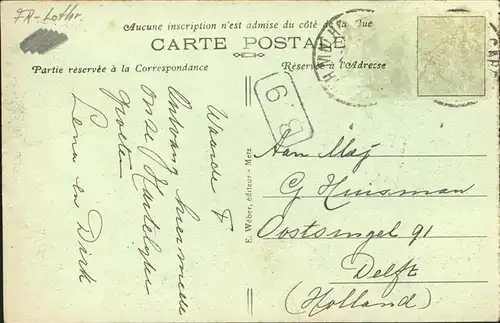 FR-Lothr.
Aucune inscription n'est admise du côté de la Vue
CARTE POSTALE
Partie réservée à la Correspondance
Réservé à l'Adresse
B.9
Waarde F
Ontvang hiermede
onze Hartelyke
groeten
Lena en Dirk
E. Wéber, éditeur - Metz
Aan Mej
G Huisman
Oostsingel 91
Delft
(Holland)